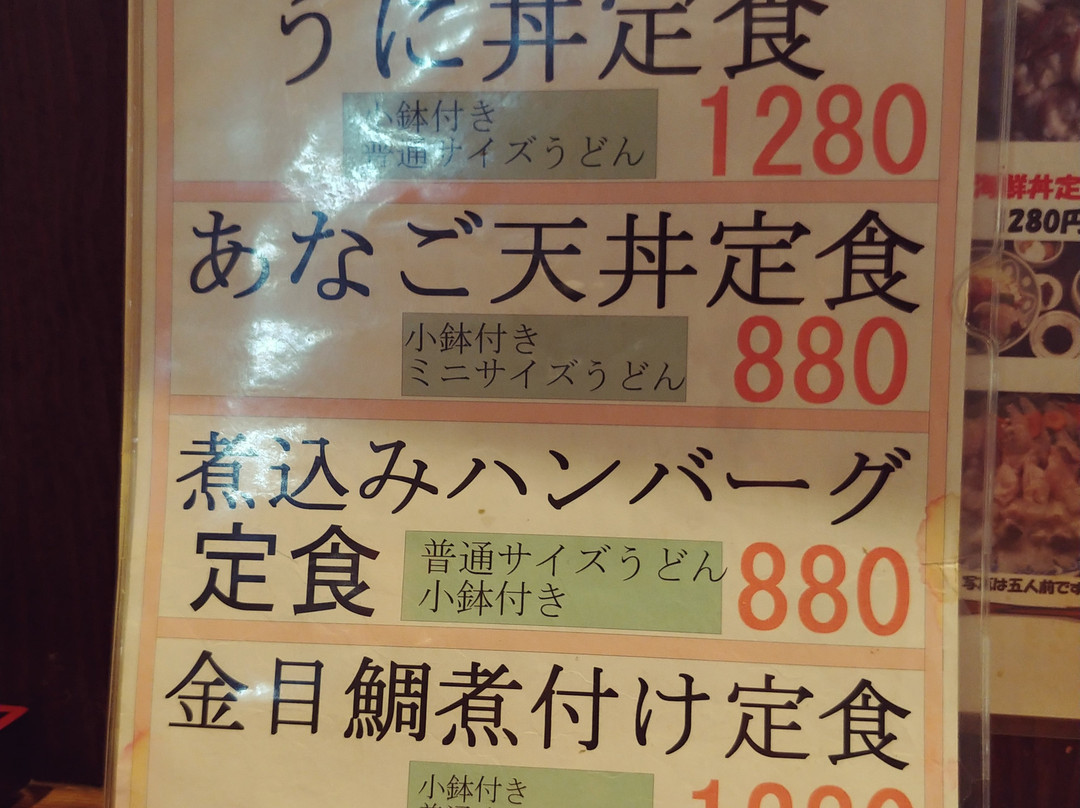 うに丼定食
小鉢付き
普通サイズうどん
1280
あなご天丼定食
小鉢付き
ミニサイズうどん
880
煮込みハンバーグ
定食
普通サイズうどん
小鉢付き
880
金目鯛煮付け定食
小鉢付き
海鮮丼定
1280円
写真は五人前です